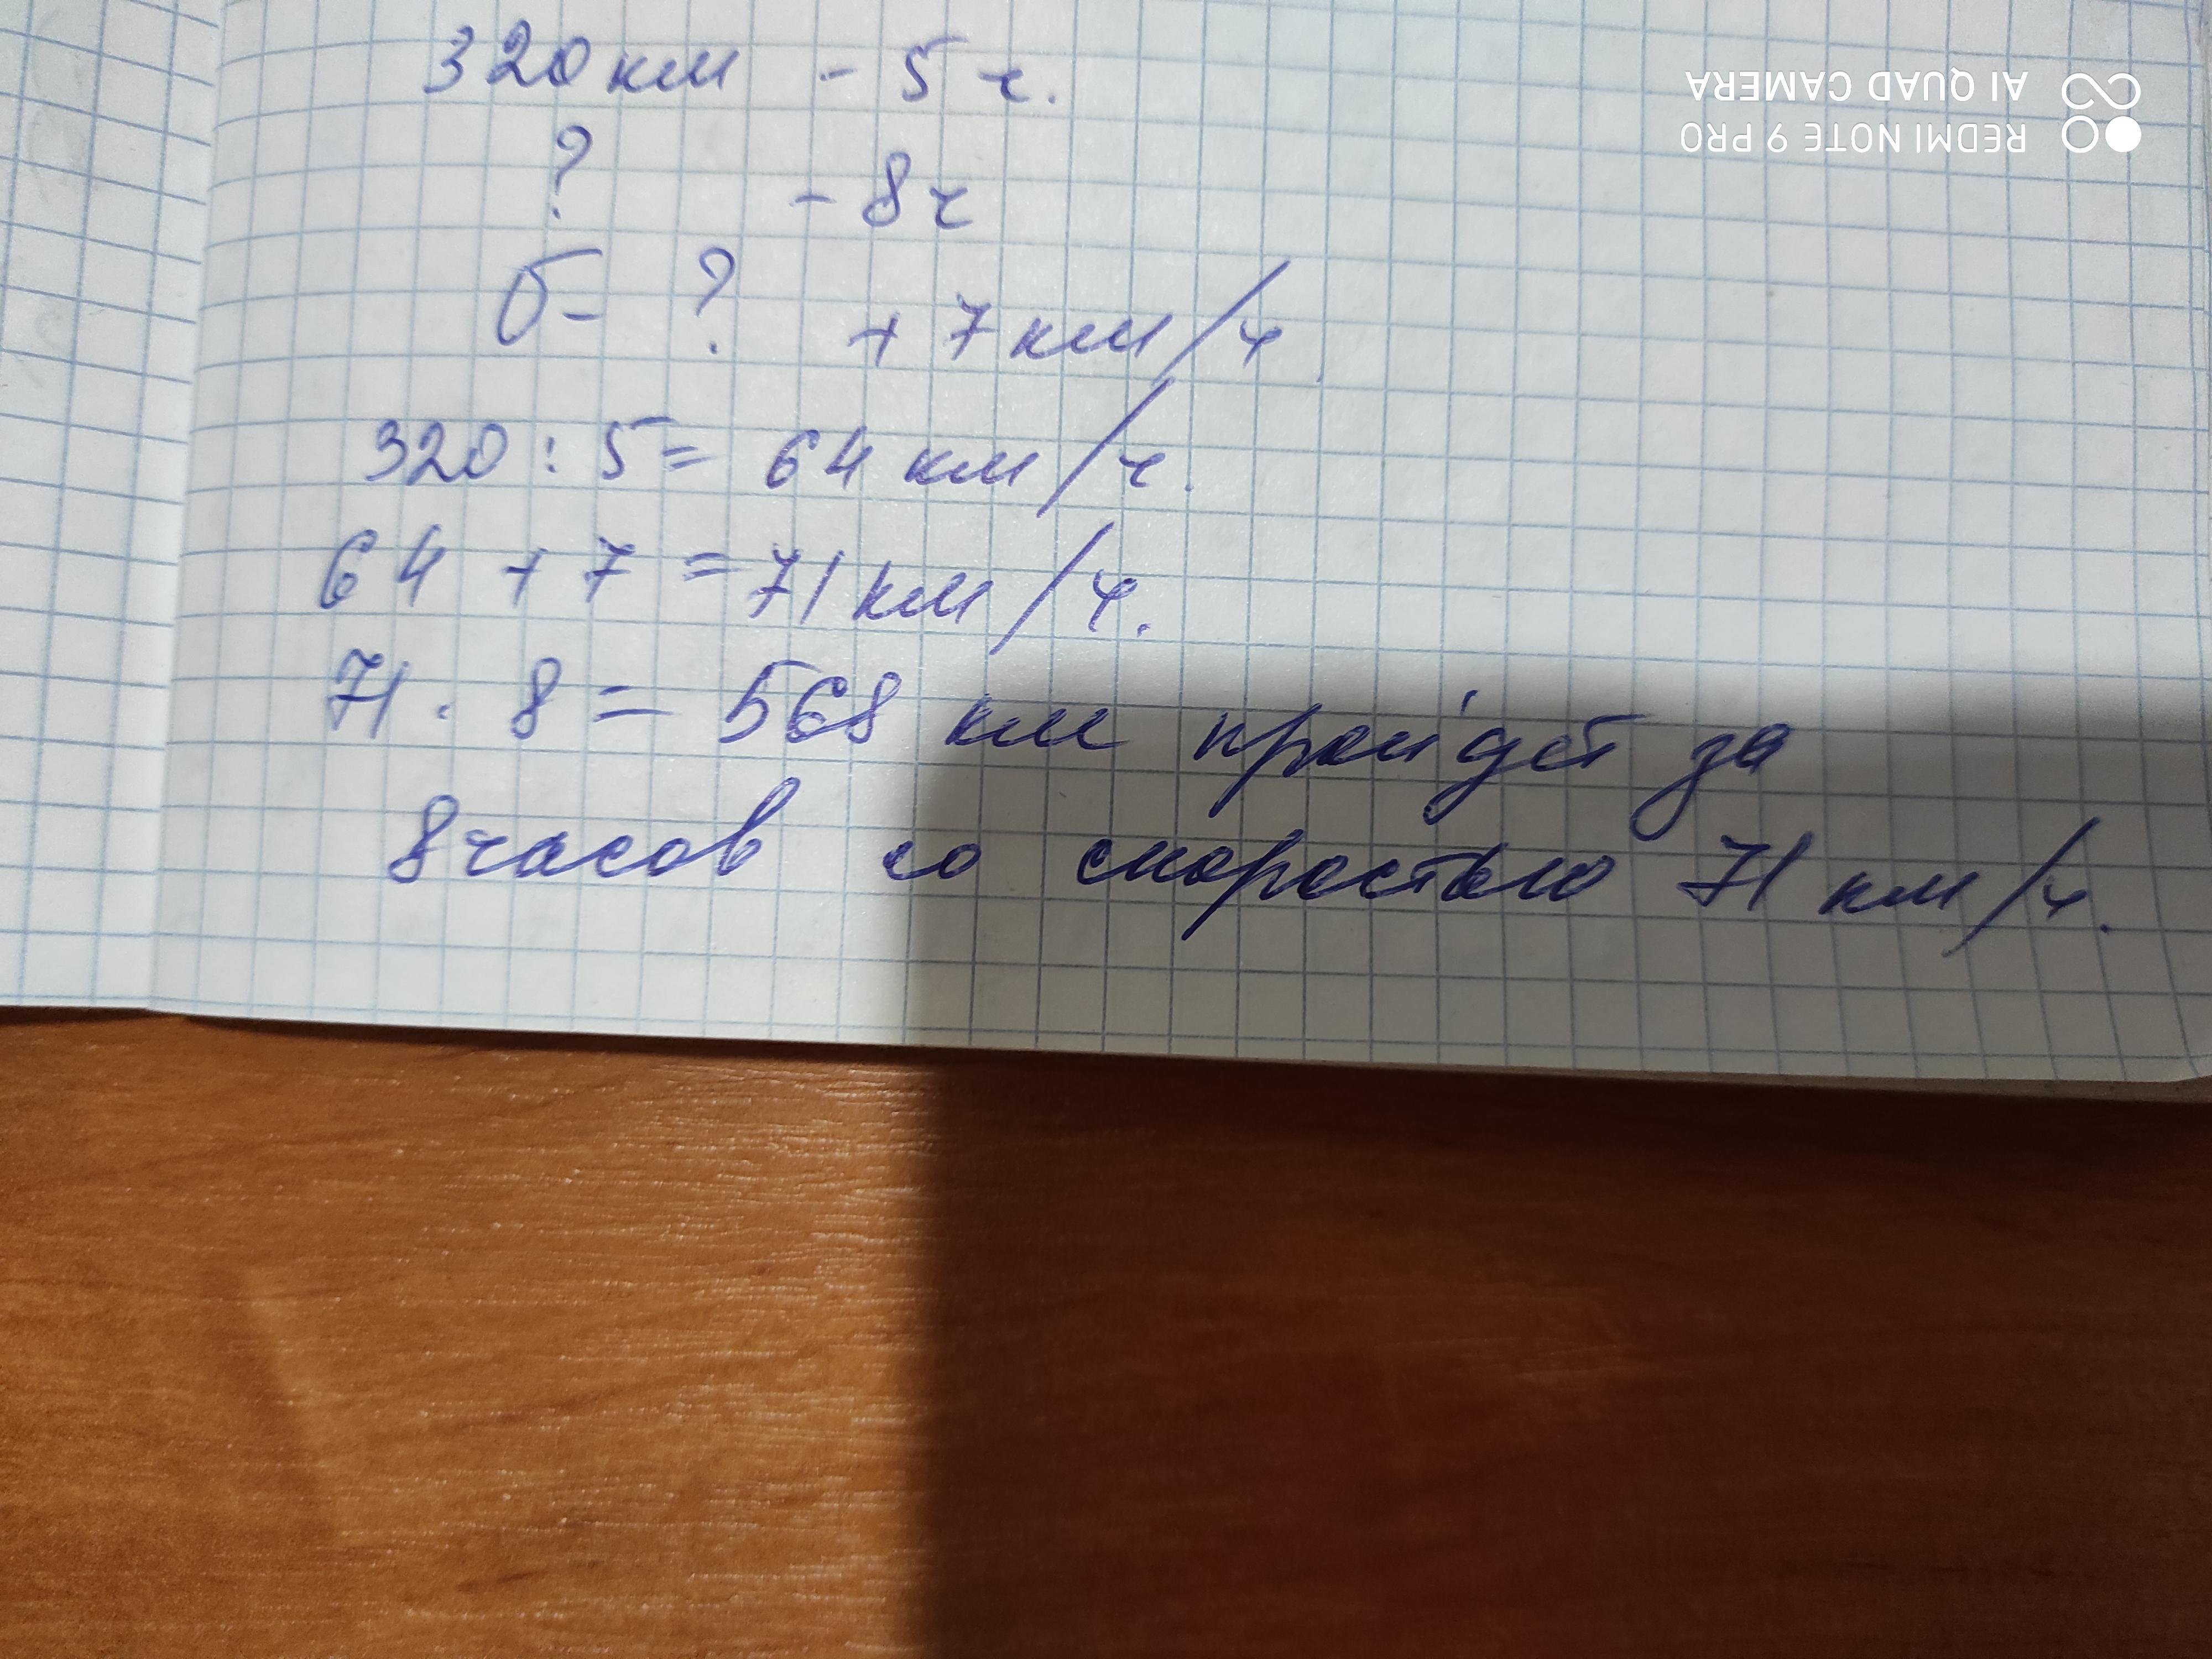 320 км - 5 ч.
? - 8 ч
V - ? + 7 км/ч
320 : 5 = 64 км/ч.
64 + 7 = 71 км/ч.
71 · 8 = 568 км пройдет за
8 часов со скоростью 71 км/ч.
REDMI NOTE 9 PRO
AI QUAD CAMERA